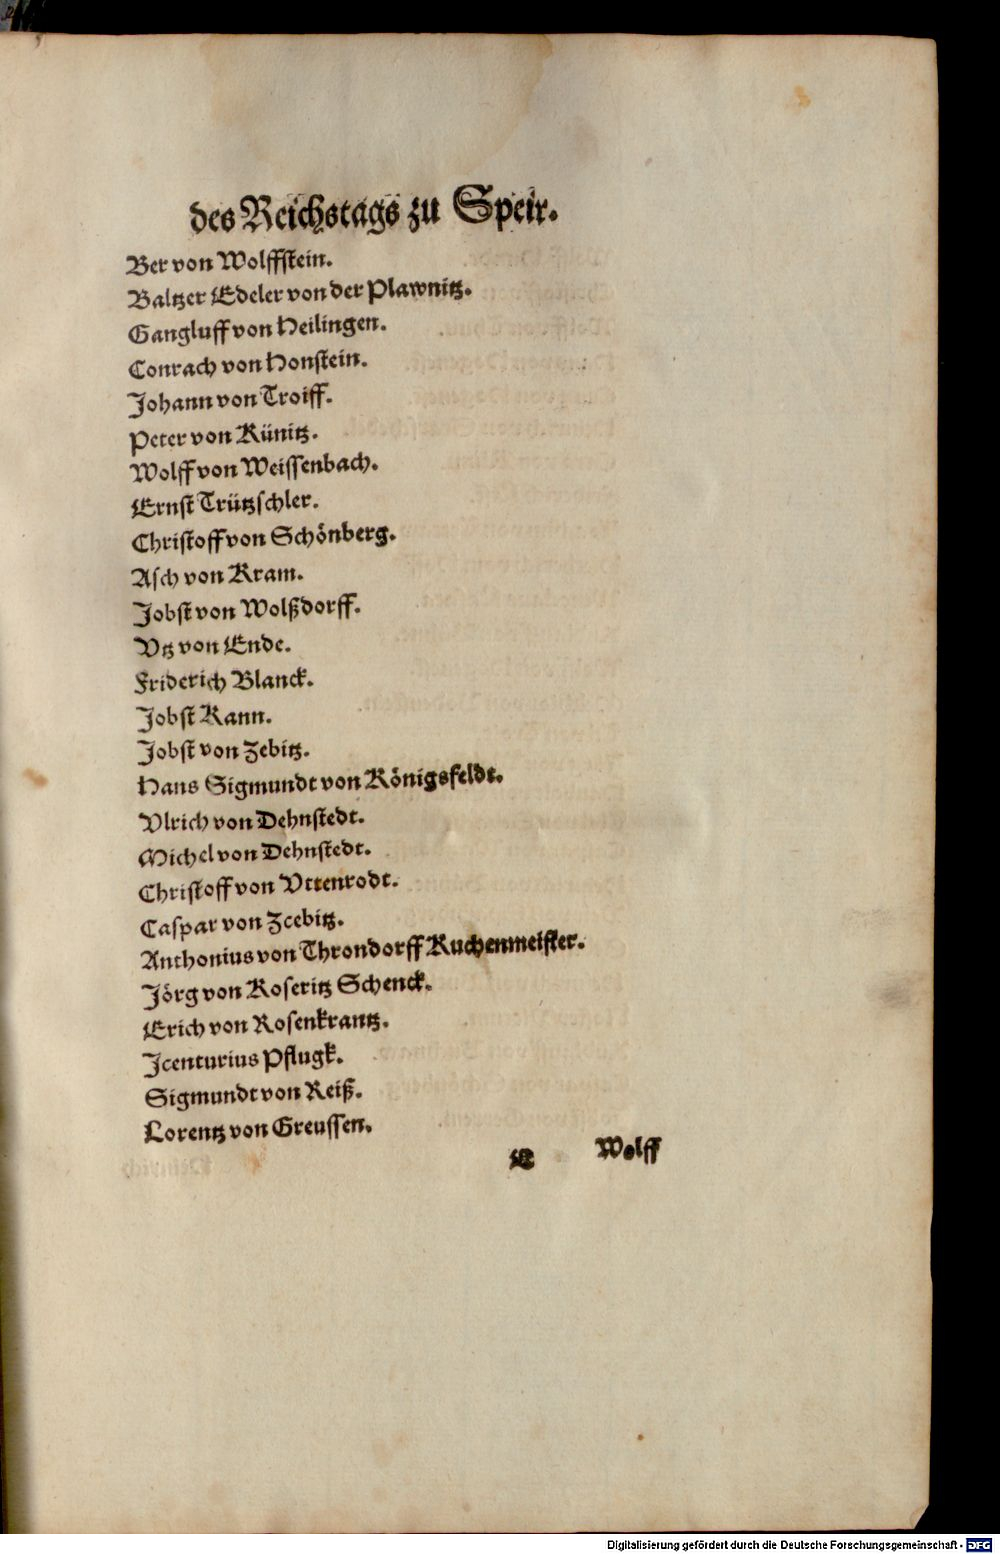 des Reichstags zu Speir.
Ber von Wolffstein.
Baltzer Edeler von der Plawnitz.
Gangluff von Heilingen.
Conrach von Honstein.
Johann von Troiff.
Peter von Künitz.
Wolff von Weissenbach.
Ernst Trützschler.
Christoff von Schönberg.
Asch von Kram.
Jobst von Wolßdorff.
Vtz von Ende.
Friderich Blanck.
Jobst Kann.
Jobst von Zebitz.
Hans Sigmundt von Königsfeldt.
Vlrich von Dehnstedt.
Michel von Dehnstedt.
Christoff von Vttenrodt.
Caspar von Zcebitz.
Anthonius von Throndorff Kuchenmeister.
Jörg von Koseritz Schenck.
Erich von Rosenkrantz.
Jcenturius Pflugk.
Sigmundt von Reiß.
Lorentz von Greussen.
Wolff
Digitalisierung gefördert durch die Deutsche Forschungsgemeinschaft - DFG